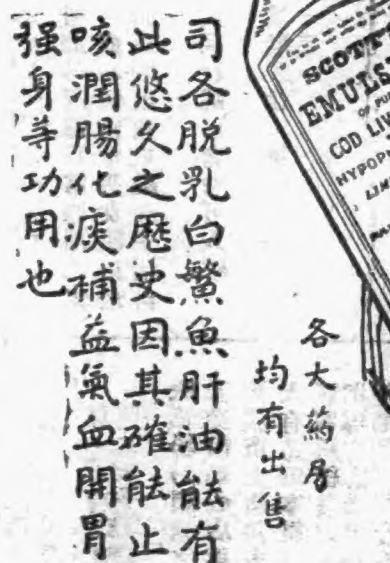 司各脱乳白鰵魚肝油能有
此悠久之歷史因其確能止
咳潤腸化痰補益氣血開胃
强身等功用也
各大药房
均有出售
SCOTT'S
EMULSI
COD LIV
HYPOPH
LIM